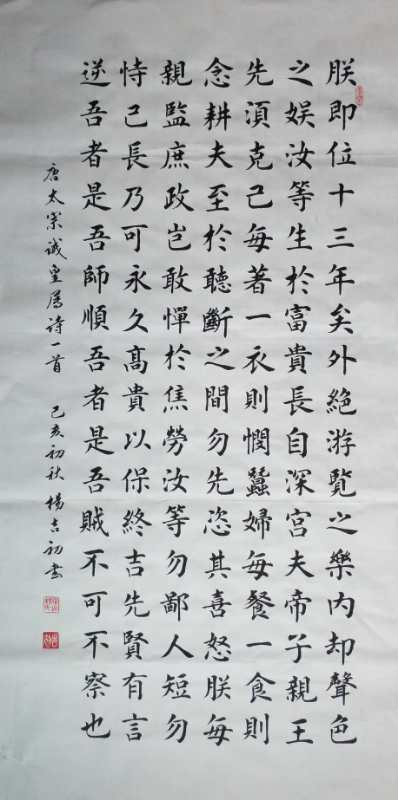 朕即位十三年矣外絶游覽之樂内却聲色
之娱汝等生於富貴長自深宫夫帝子親王
先須克己每著一衣則憫蠶婦每餐一食則
念耕夫至於聽斷之間勿先恣其喜怒朕每
親監庶政豈敢憚於焦勞汝等勿鄙人短勿
恃己長乃可永久髙貴以保終吉先賢有言
逆吾者是吾師順吾者是吾賊不可不察也
唐太宗誡皇屬詩一首 己亥初秋 楊吉初书